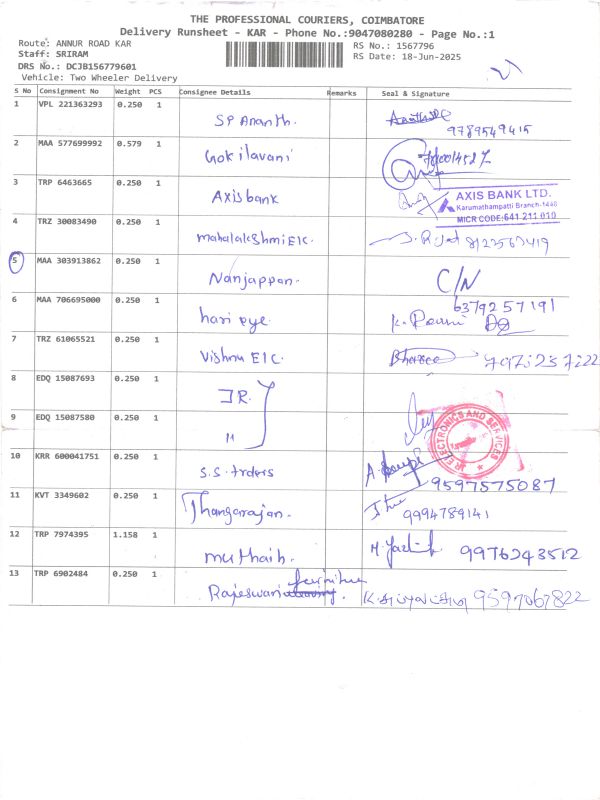 THE PROFESSIONAL COURIERS, COIMBATORE
Delivery Runsheet - KAR - Phone No.:9047080280 - Page No.:1
Route: ANNUR ROAD KAR
RS No.: 1567796
Staff: SRIRAM
RS Date: 18-Jun-2025
DRS No.: DCJB156779601
Vehicle: Two Wheeler Delivery
S No Consignment No Weight PCS Consignee Details Remarks Seal & Signature
1 VPL 221363293 0.250 1 SP Ananth.
9789549415
2 MAA 577699992 0.579 1 Gokilavani
3 TRP 6463665 0.250 1 Axis bank
AXIS BANK LTD.
Karumathampatti Branch-1448
MICR CODE:641 211 010
4 TRZ 30083490 0.250 1 mahalakshmi E1C.
5 MAA 303913862 0.250 1 Nanjappan. C/N
6 MAA 706695000 0.250 1 hari eye 6379257191
7 TRZ 61065521 0.250 1 Vishnu E1C.
8 EDQ 15087693 0.250 1 JR.
9 EDQ 15087580 0.250 1 11
JR ELECTRONICS AND SERVICES
10 KRR 600041751 0.250 1 S.S. trders
9597575087
11 KVT 3349602 0.250 1 Thangarajan.
9994789141
12 TRP 7974395 1.158 1 muthaih. 9976243512
13 TRP 6902484 0.250 1 Rajeswari furnitue 9597067822